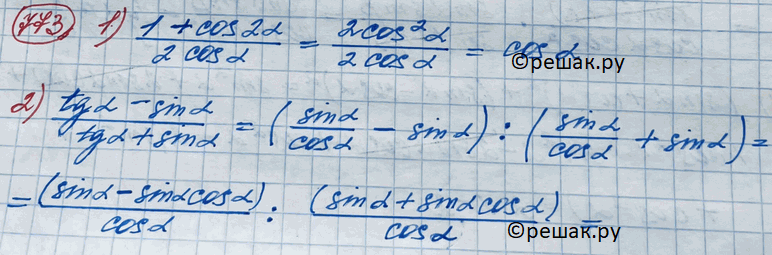 773. 1) (1 + cos 2α)/(2 cos α) = (2 cos² α)/(2 cos α) = cos α
©решак.ру
2) (tg α - sin α)/(tg α + sin α) = (sin α/cos α - sin α) : (sin α/cos α + sin α) =
= (sin α - sin α cos α)/cos α : (sin α + sin α cos α)/cos α =
©решак.ру